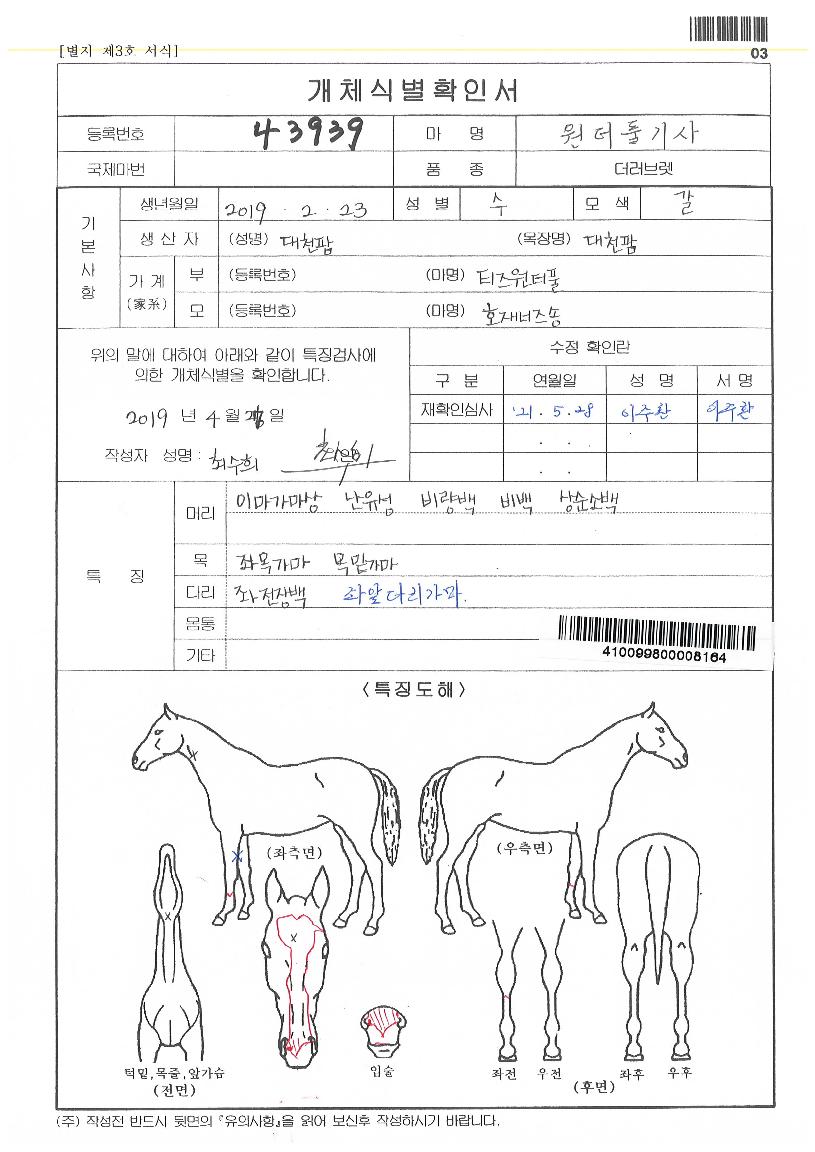 [별지 제3호 서식]
03
개체식별확인서
등록번호 43939 마 명 원더풀기사
국제마번 품 종 더러브렛
기본사항
생년월일 2019 . 2 . 23 성 별 수 모 색 갈
생 산 자 (성명) 대천팜 (목장명) 대천팜
가 계 (家系) 부 (등록번호) (마명) 티즈원더풀
모 (등록번호) (마명) 호재너즈송
위의 말에 대하여 아래와 같이 특징검사에
의한 개체식별을 확인합니다.
2019 년 4 월 일
작성자 성명 : 최수희
수정 확인란
구 분 연월일 성 명 서 명
재확인심사 '21 . 5 . 28 이주환 이주환
. . .
. . .
특 징
머리 이마가마상 난유성 비량백 비백 상순소백
목 좌목가마 목밑가마
다리 좌전장백 좌앞다리가마.
몸통
기타
410099800008164
<특징도해>
(좌측면) (우측면)
턱밑,목줄,앞가슴
(전면)
입술
좌전 우전 좌후 우후
(후면)
(주) 작성전 반드시 뒷면의 『유의사항』을 읽어 보신후 작성하시기 바랍니다.